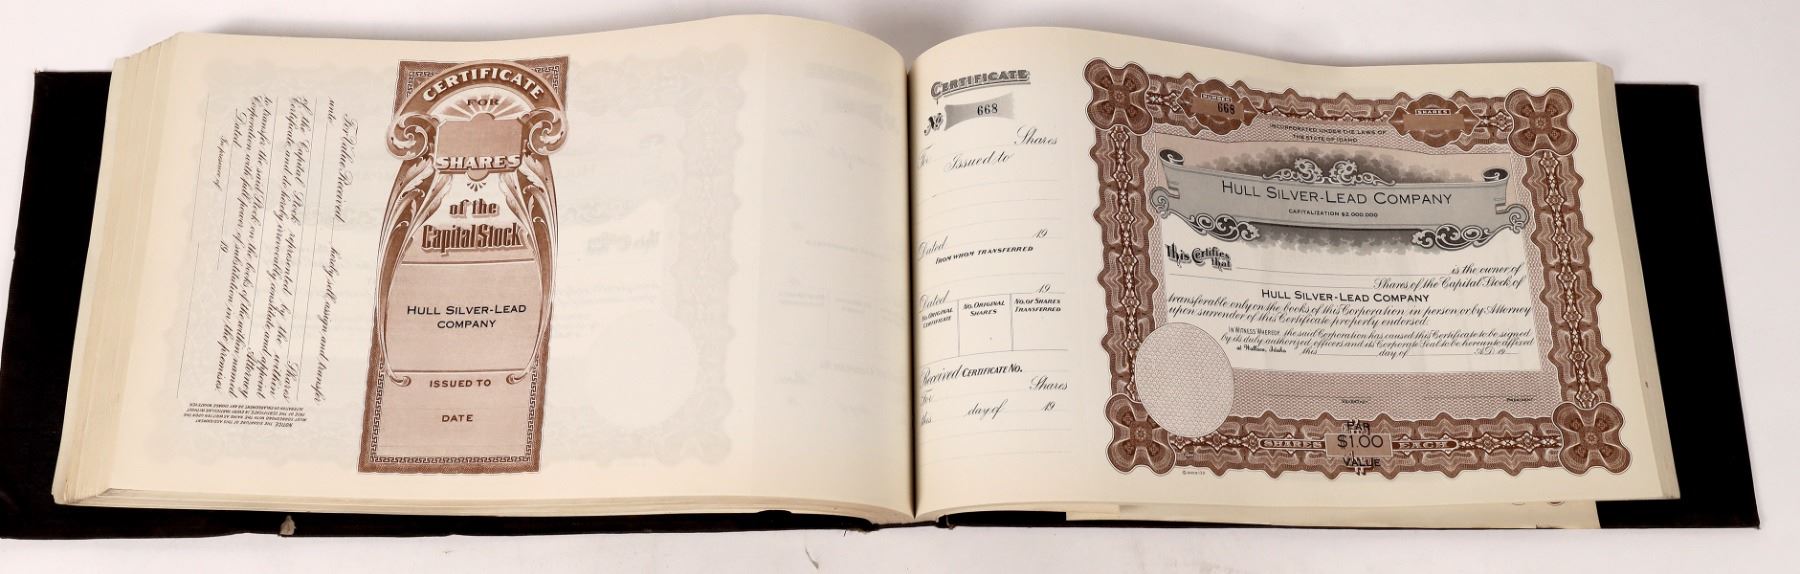 For Value Received hereby sell, assign and transfer
unto
Shares
of the Capital Stock represented by the within
Certificate and do hereby irrevocably constitute and appoint
Attorney
to transfer the said Stock on the books of the within named
Corporation with full power of substitution in the premises.
Dated 19
In presence of
NOTICE. THE SIGNATURE OF THIS ASSIGNMENT
MUST CORRESPOND WITH THE NAME AS WRITTEN UPON THE
FACE OF THE CERTIFICATE IN EVERY PARTICULAR WITHOUT
ALTERATION OR ENLARGEMENT OR ANY CHANGE WHATEVER
CERTIFICATE
FOR
SHARES
of the
Capital Stock
HULL SILVER-LEAD
COMPANY
ISSUED TO
DATE
CERTIFICATE
No. 668
Shares
For
Issued to
Dated 19
FROM WHOM TRANSFERRED
Dated 19
NO. ORIGINAL CERTIFICATE NO. ORIGINAL SHARES NO. OF SHARES TRANSFERRED
Received CERTIFICATE NO.
For Shares
this day of 19
NUMBER
668
SHARES
INCORPORATED UNDER THE LAWS OF
THE STATE OF IDAHO
HULL SILVER-LEAD COMPANY
CAPITALIZATION $2,000,000
This Certifies
that is the owner of
Shares of the Capital Stock of
HULL SILVER-LEAD COMPANY
transferable only on the books of this Corporation in person or by Attorney
upon surrender of this Certificate properly endorsed.
IN WITNESS WHEREOF, the said Corporation has caused this Certificate to be signed
by its duly authorized officers and its Corporate Seal to be hereunto affixed
at Wallace, Idaho this day of A.D. 19
SECRETARY PRESIDENT
PAR
SHARES $1.00 EACH
VALUE